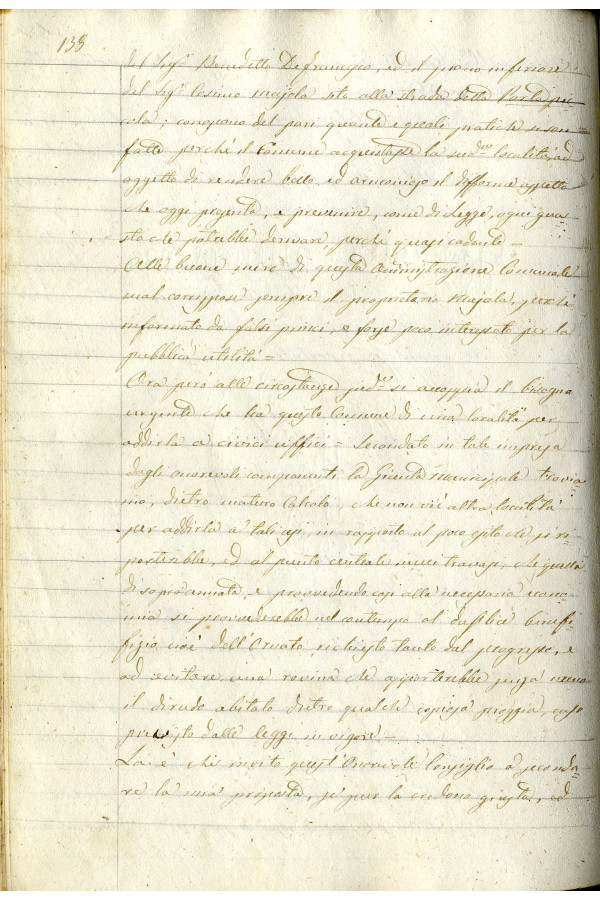 138
del Sig.r Benedetto Defrancesco, ed il piano inferiore
del Sig.r Cosimo Majola sito alla strada detta Porta pic
cola; conoscono del pari quante e quali pratiche si son
fatte perchè il Comune acquistasse la sud.a località, ad
oggetto di rendere bello ed armonioso il difforme aspetto
che oggi presenta, e prevenire, come di Legge, ogni gua-
sto che potrebbe derivare, perchè quasi cadente =
Alle buone mire di questa Amministrazione Comunale
mal corrispose sempre il proprietario Majola, perchè
informato da falsi principi, e forse poco interessato per la
pubblica utilità =
Ora però alle circostanze sud.e si accoppia il bisogno
urgente che ha questo Comune di una località per
addirla a civici uffici = Secondato in tale impresa
dagli onorevoli componenti la Giunta Municipale trovia
mo, dietro maturo calcolo, che non vi è altra località
per addirla a tali usi, in rapporto al poco esito che si ri-
porterebbe, ed al punto centrale ove trovasi, che quella
di sopra cennata, e provvedendo così alla necessaria econo
mia si provvederebbe nel contempo al duplice benefi-
fizio, cioè dell'Ornato richiesto tanto dal progresso, e
ad evitare una rovina che apporterebbe senza meno
il diruto abitato dietro qualche copiosa pioggia, caso
previsto dalle leggi in vigore =
invito quest'Onorevole Consiglio a seconda-
re la mia proposta, se pur la credono giusta, ed